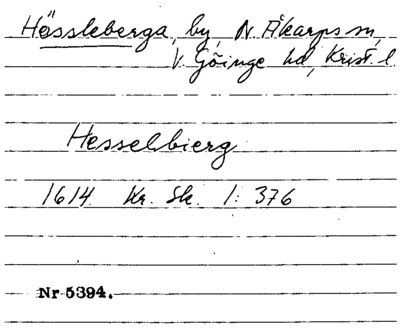 Hössleberga, by, N. Åkarps sn,
V. Göinge hd, Krist. l
Hesselbierg
1614 Kr. Sk. 1: 376
Nr 5394.